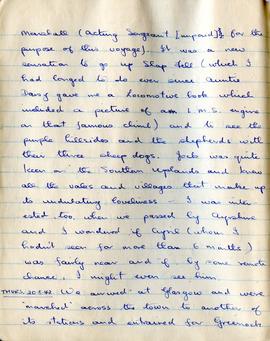 Marshall (Acting Sergeant [unpaid]!) for the
purpose of this voyage). It was a new
sensation to go up Shap Fell (which I
had longed to do ever since Auntie
Daisy gave me a Locomotive book which
included a picture of an L.M.S. engine
on that famous climb) and to see the
purple hillsides and the shepherds with
their three sheep dogs. Jock was quite
keen on the Southern Uplands and knew
all the vales and villages that make up
its undulating loveliness - I was inter-
ested too, when we passed by Ayrshire
and I wondered if Cyril (whom I
hadn't seen for more than 6 months)
was fairly near and if by some remote
chance, I might even see him.
THURS. 20.8.42 We arrived at Glasgow and were
'marched' across the town to another of
its stations and entrained for Greenock